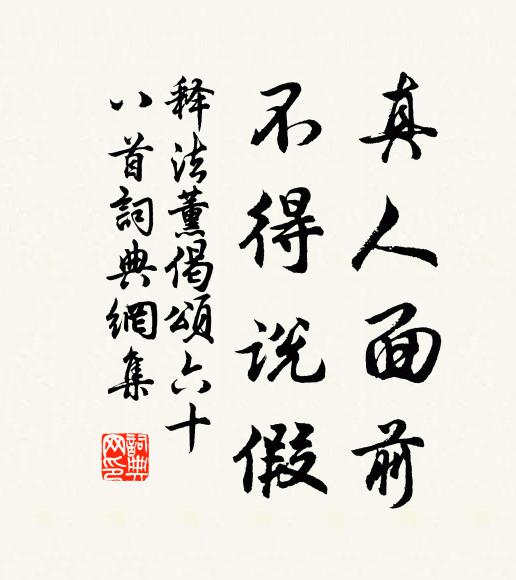 真人面前
不得说假
释法薰偈颂六十
八首詞典網集
詞典
网印